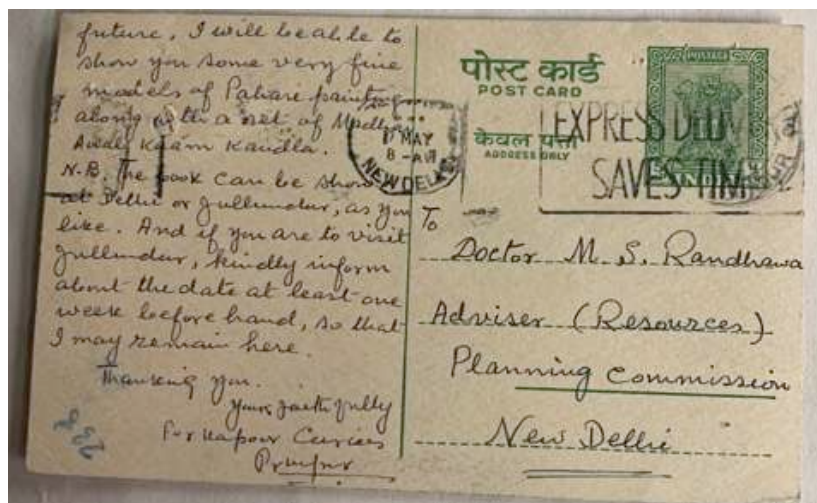 future, I will be able to
show you some very fine
models of Pahare painting
along with a set of Madhva
Kaam Kandla.
N.B. The book can be show
at Delhi or Jullundur, as you
like. And if you are to visit
Jullundur, kindly inform
about the date at least one
week before hand, so that
I may remain here.
Thanking you.
Yours faithfully
For Kapoor Curios
पोस्ट कार्ड
POST CARD
केवल पत्ता
ADDRESS ONLY
POSTAGE
MAY
8-AM
NEW DELHI
EXPRESS DELIVERY
SAVES TIME
To
Doctor M. S. Randhawa
Adviser (Resources)
Planning Commission
New Delhi